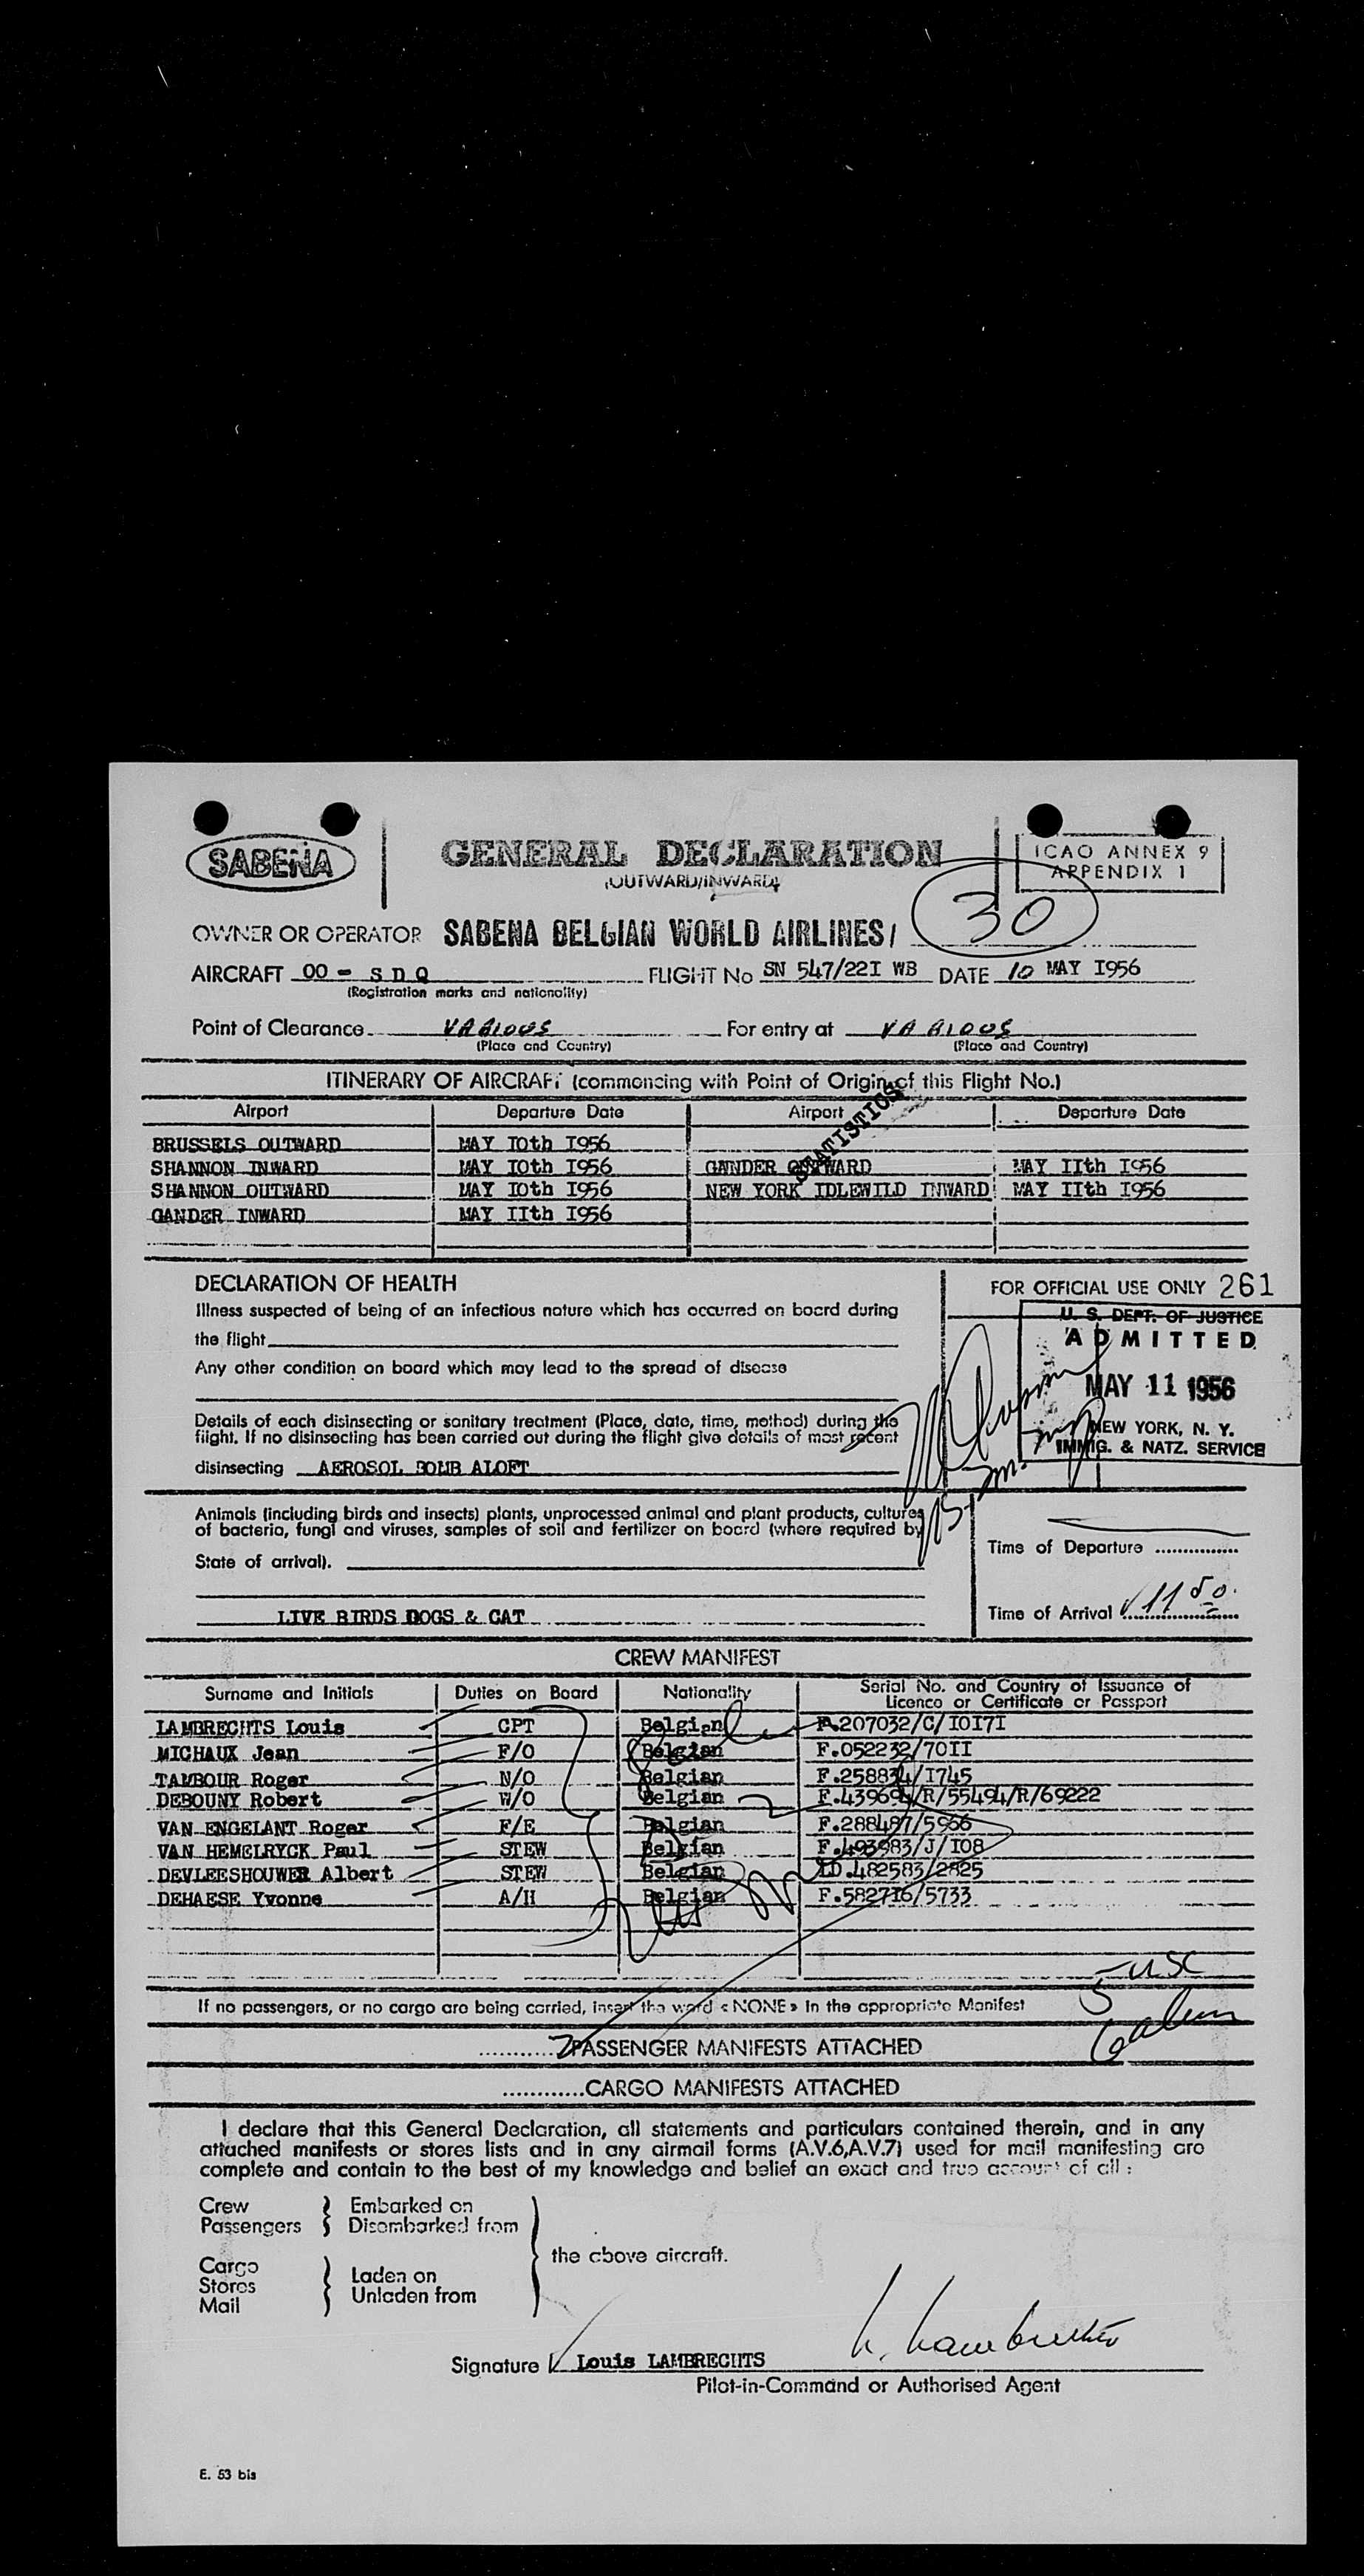 SABENA
GENERAL DECLARATION
(OUTWARD/INWARD)
ICAO ANNEX 9
APPENDIX 1
30
OWNER OR OPERATOR SABENA BELGIAN WORLD AIRLINES/
AIRCRAFT OO - S D Q FLIGHT No SN 547/22I WB DATE 10 MAY I956
(Registration marks and nationality)
Point of Clearance VARIOUS For entry at VARIOUS
(Place and Country) (Place and Country)
ITINERARY OF AIRCRAFT (commencing with Point of Origin of this Flight No.)
STATISTICS
Airport Departure Date Airport Departure Date
BRUSSELS OUTWARD MAY IOth I956
SHANNON INWARD MAY IOth I956 GANDER OUTWARD MAY IIth I956
SHANNON OUTWARD MAY IOth I956 NEW YORK IDLEWILD INWARD MAY IIth I956
GANDER INWARD MAY IIth I956
DECLARATION OF HEALTH
FOR OFFICIAL USE ONLY 261
Illness suspected of being of an infectious nature which has occurred on board during
the flight
Any other condition on board which may lead to the spread of disease
U. S. DEPT. OF JUSTICE
ADMITTED
MAY 11 1956
NEW YORK, N. Y.
IMMIG. & NATZ. SERVICE
Details of each disinsecting or sanitary treatment (Place, date, time, method) during the
flight. If no disinsecting has been carried out during the flight give details of most recent
disinsecting AEROSOL BOMB ALOFT
Animals (including birds and insects) plants, unprocessed animal and plant products, cultures
of bacteria, fungi and viruses, samples of soil and fertilizer on board (where required by
State of arrival).
Time of Departure
LIVE BIRDS DOGS & CAT
Time of Arrival 11 50
CREW MANIFEST
Surname and Initials Duties on Board Nationality Serial No. and Country of Issuance of
Licence or Certificate or Passport
LAMBRECHTS Louis CPT Belgian A.207032/C/IOI7I
MICHAUX Jean F/O Belgian F.052232/70II
TAMBOUR Roger N/O Belgian F.258834/I745
DEBOUNY Robert W/O Belgian F.439694/R/55494/R/69222
VAN ENGELANT Roger F/E Belgian F.288487/5966
VAN HEMELRYCK Paul STEW Belgian F.493983/J/IO8
DEVLEESHOUWER Albert STEW Belgian LD.482583/2825
DEHAESE Yvonne A/H Belgian F.5827I6/5733
5 USC
6 alien
If no passengers, or no cargo are being carried, insert the word « NONE » in the appropriate Manifest
............7PASSENGER MANIFESTS ATTACHED
............CARGO MANIFESTS ATTACHED
I declare that this General Declaration, all statements and particulars contained therein, and in any
attached manifests or stores lists and in any airmail forms (A.V.6,A.V.7) used for mail manifesting are
complete and contain to the best of my knowledge and belief an exact and true account of all :
Crew Embarked on
Passengers Disembarked from
the above aircraft.
Cargo
Stores Laden on
Mail Unladen from
Signature Louis LAMBRECHTS L. Lambrechts
Pilot-in-Command or Authorised Agent
E. 53 bis